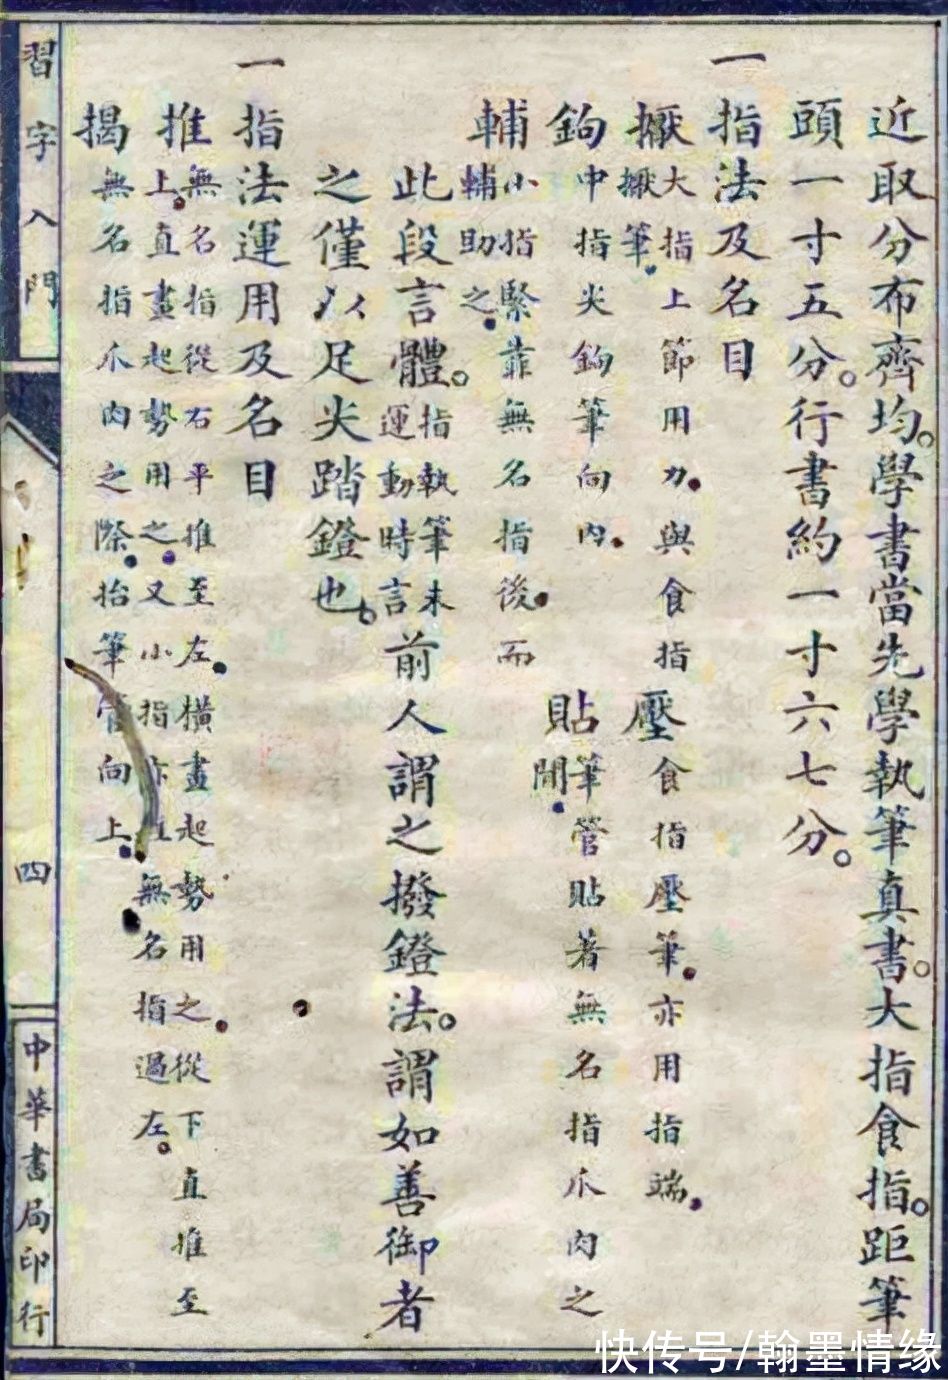 近取分布齊均。學書當先學執筆真書。大指食指。距筆
頭一寸五分。行書約一寸六七分。
一指法及名目
擫大指上節用力。與食指擫筆。壓食指壓筆。亦用指端。
鉤中指尖鉤筆向內。貼筆管貼著無名指爪肉之間。
輔小指緊靠無名指後。而輔助之。
此段言體。指執筆未運動時言前人謂之撥鐙法。謂如善御者
之僅以足尖踏鐙也。
一指法運用及名目
推無名指從右平推至左。橫畫起勢用之。從下直推至上。直畫起勢用之。又小指亦無名指過左。
揭無名指爪肉之際。抬筆管向上。
習字入門
四
中華書局印行
快传号/翰墨情缘